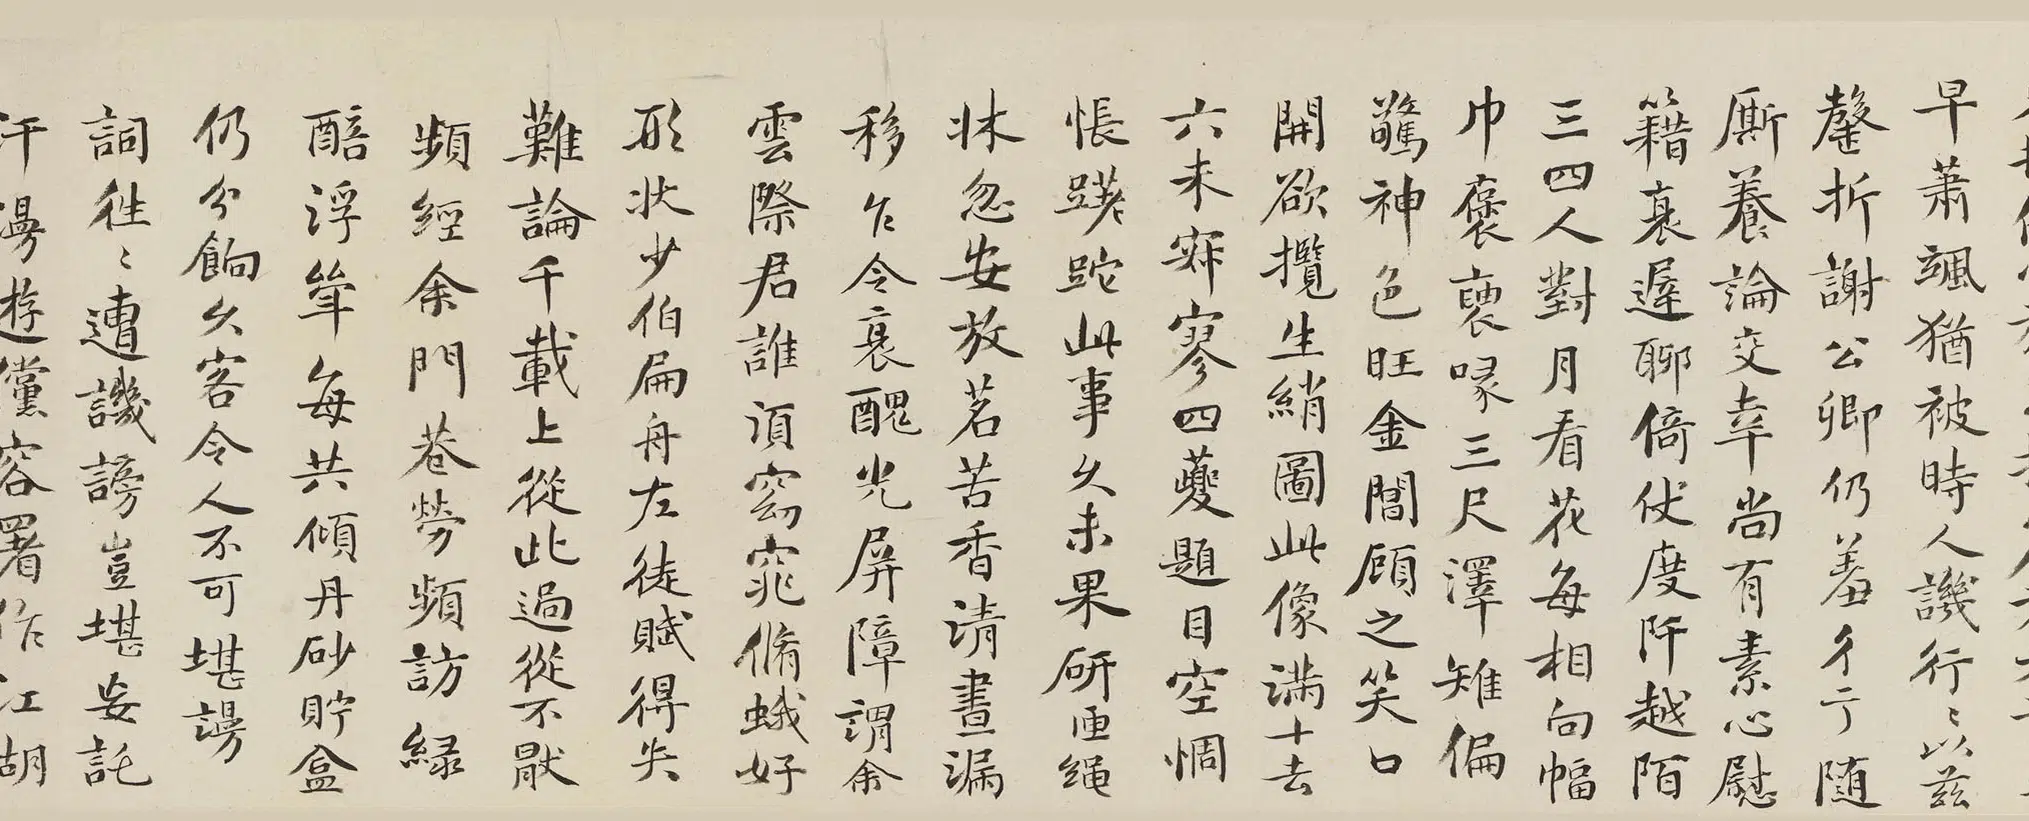 早蕭颯猶被時人譏行〻以茲
罄折謝公卿仍羞彳亍随
厮養論交幸尚有素心慰
籍衰遲聊倚仗度阡越陌
三四人對月看花每相向幅
巾褒裒喙三尺澤雉偏
驚神色旺金閶顧之笑口
開欲攬生綃圖此像滿十去
六未寂寥四夔題目空惆
悵蹉跎此事久未果研匣绳
牀忽安放茗苦香清晝漏
移乍令衰醜光屏障謂余
雲際君誰須窈窕脩蛾好
形狀少伯扁舟左徒賦得失
難論千載上從此過從不厭
頻經余門巷勞頻訪緑
醅浮斝每共傾丹砂貯盒
仍分餉久客令人不可堪謗
詞徃〻遭譏謗豈堪妄託
汗漫遊儻容署作江胡